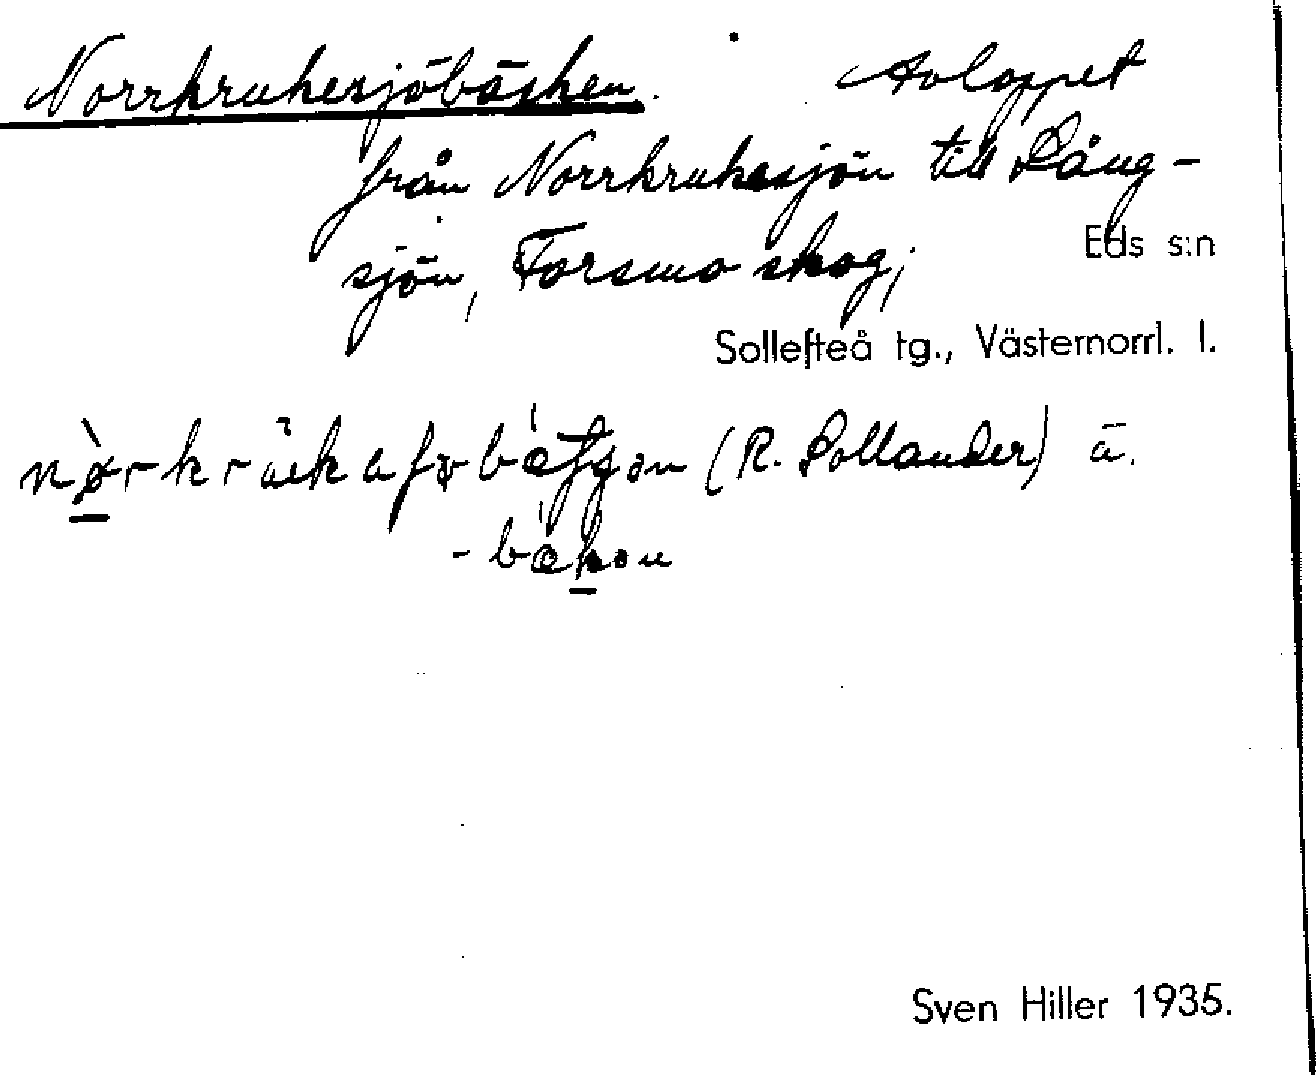 Norrkrukesjöbäcken. Avloppet
från Norrkrukesjön till Lång-
sjön, Forsmo skog;
Eds s:n
Sollefteå tg., Västernorrl. l.
(R. Sollander) ä.
Sven Hiller 1935.